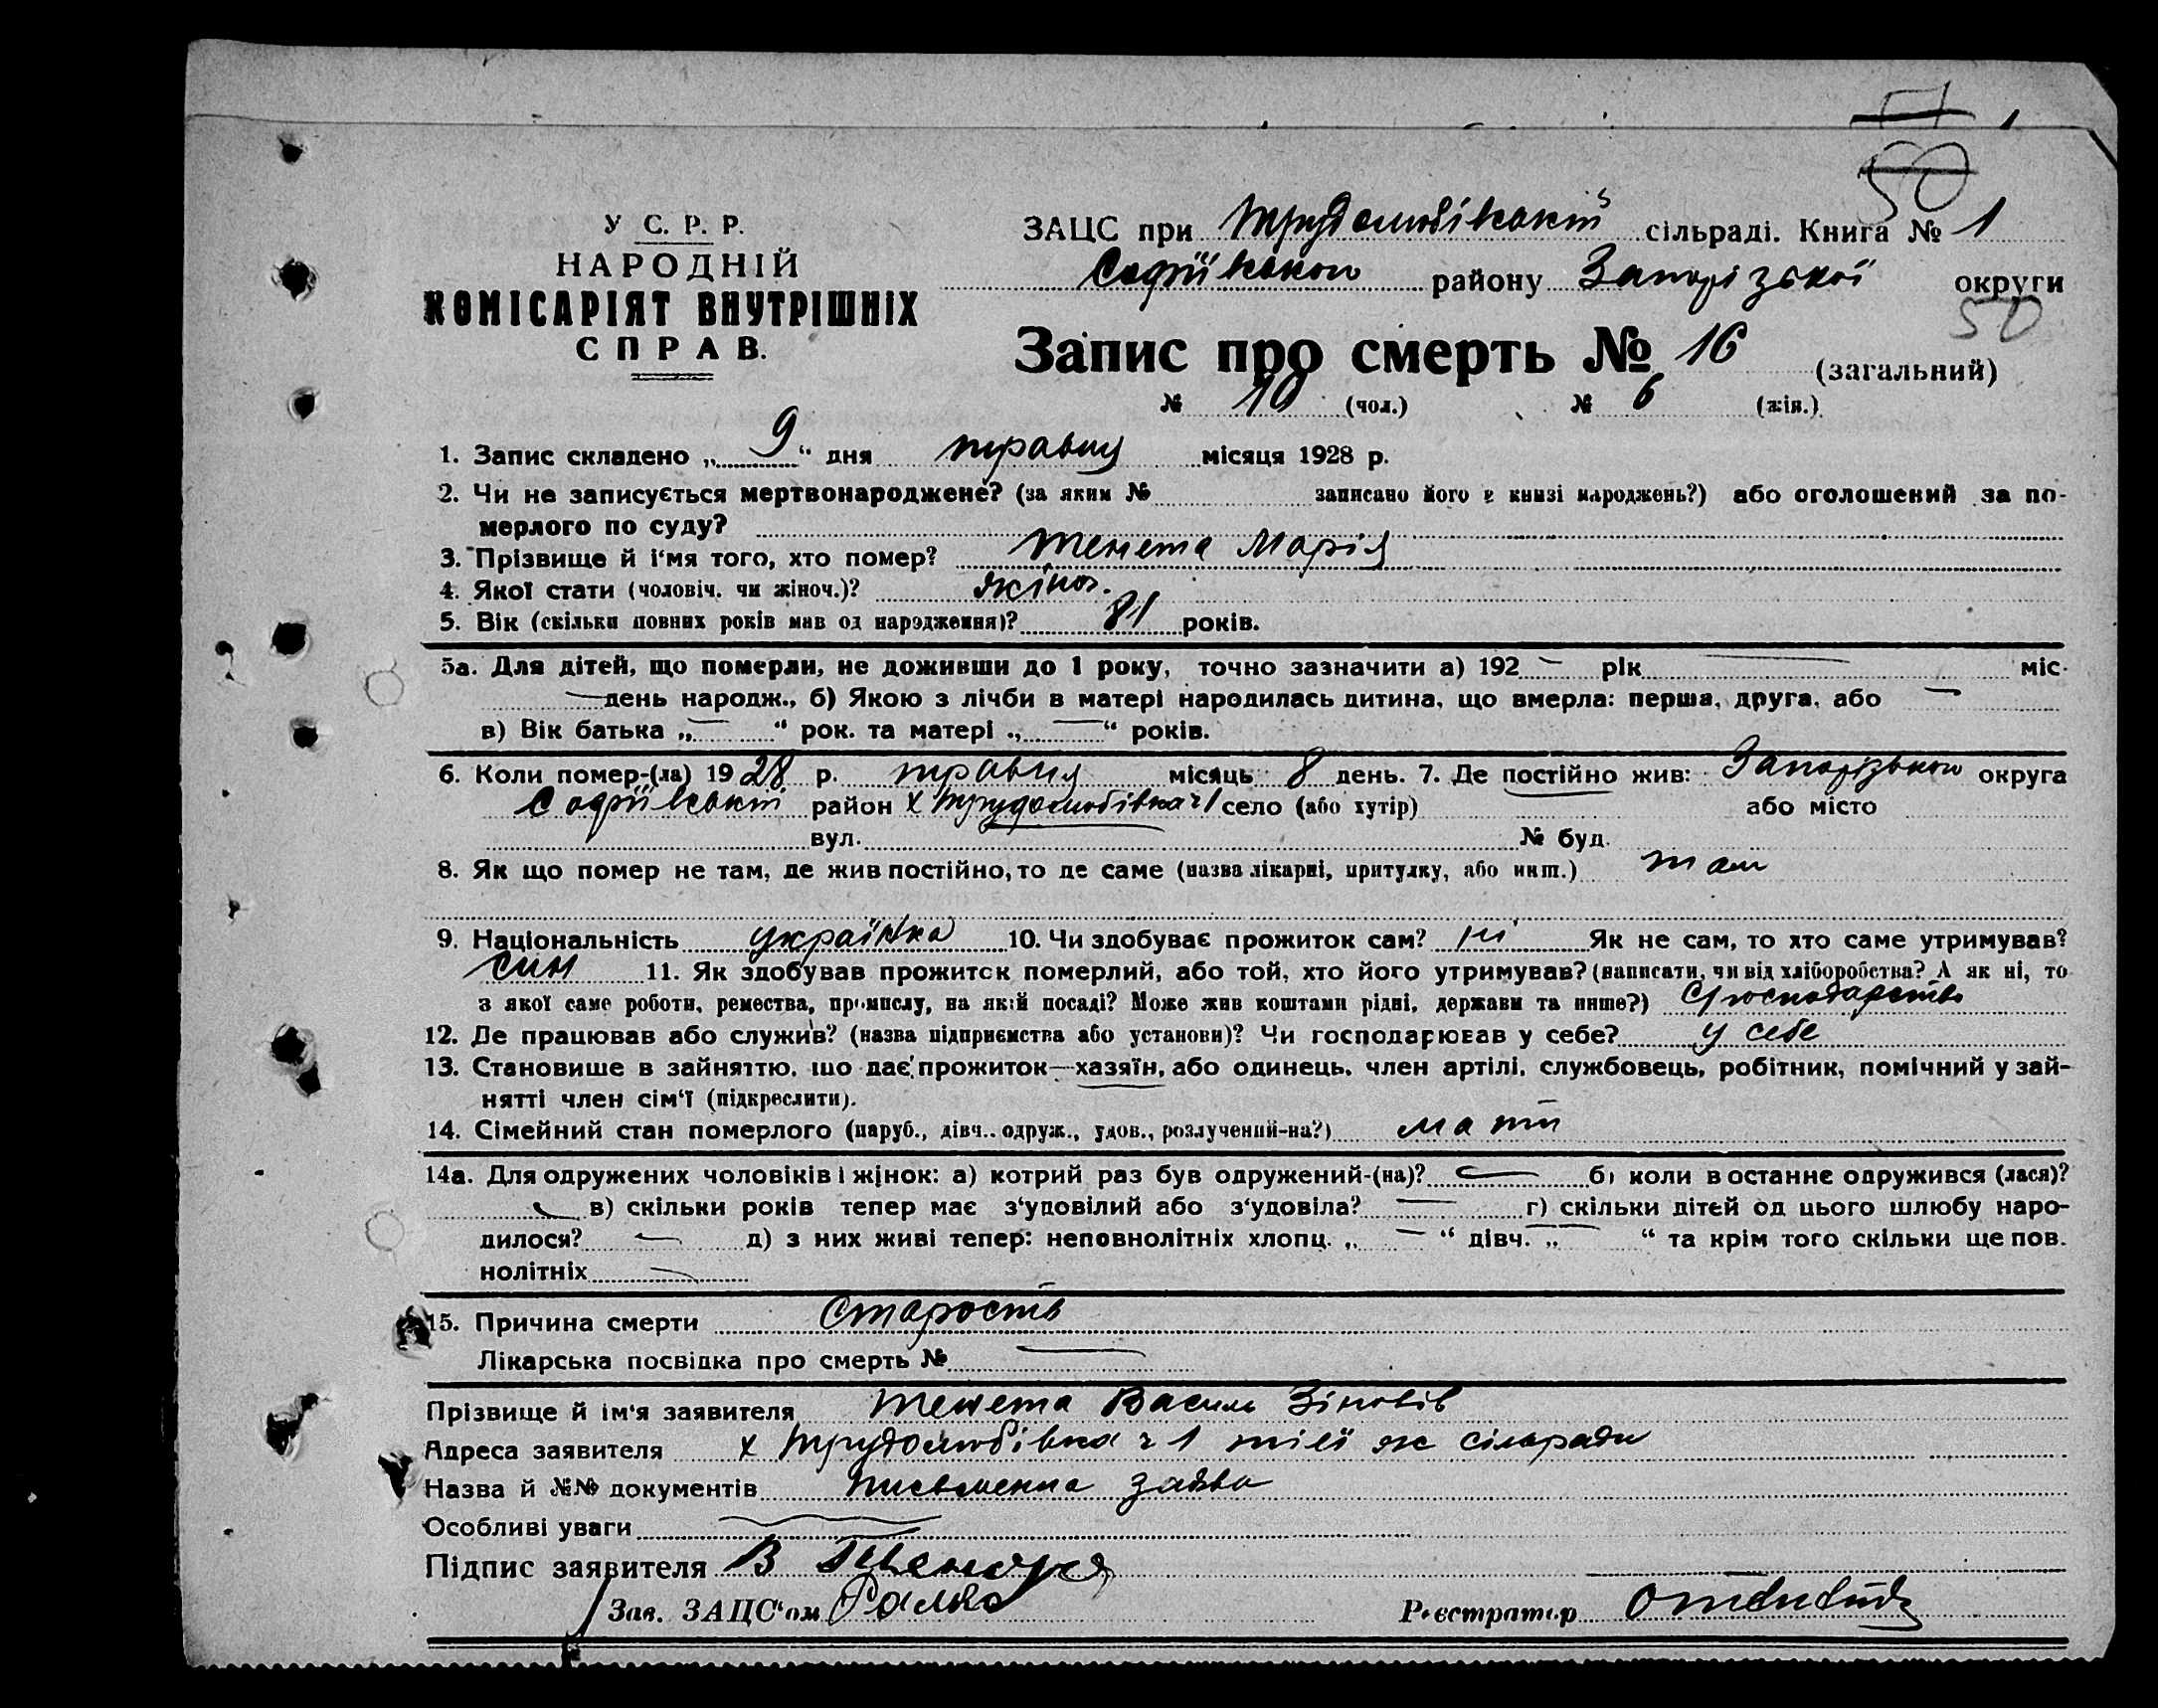 50
У С. Р. Р.
НАРОДНІЙ
КОМІСАРІЯТ ВНУТРІШНІХ
СПРАВ.
ЗАЦС при Трудолюбівській сільраді. Книга № 1
Софіївського району Запорізької округи
50
Запис про смерть № 16 (загальний)
№ 10 (чол.) № 6 (жін.)
1. Запис складено „ 9 “ дня травня місяця 1928 р.
2. Чи не записується мертвонароджене? (за яким № записано його в книзі народжень?) або оголошений за по-
мерлого по суду?
3. Прізвище й і‘мя того, хто помер? Тенета Марія
4. Якої стати (чоловіч. чи жіноч.)? жіноч.
5. Вік (скільки повних років мав од народження)? 81 років.
5а. Для дітей, що померли, не доживши до 1 року, точно зазначити а) 192 — рік — міс.
— день народж., б) Якою з лічби в матері народилась дитина, що вмерла: перша, друга, або —
в) Вік батька „ — “ рок. та матері „ — “ років.
6. Коли помер-(ла) 1928 р. травня місяць 8 день. 7. Де постійно жив: Запорізького округа
Софіївській район х Трудолюбівка ч 1 село (або хутір) або місто
вул. № буд.
8. Як що помер не там, де жив постійно, то де саме (назва лікарні, притулку, або инш.) там
9. Національність українка 10. Чи здобуває прожиток сам? ні Як не сам, то хто саме утримував?
син 11. Як здобував прожиток померлий, або той, хто його утримував? (написати, чи від хліборобства? А як ні, то
з якої саме роботи, ремества, промислу, на якій посаді? Може жив коштами рідні, держави та инше?) С/господарство
12. Де працював або служив? (назва підприємства або установи)? Чи господарював у себе? у себе
13. Становище в зайняттю, що дає прожиток—хазяїн, або одинець, член артілі, службовець, робітник, помічний у зай-
нятті член сім‘ї (підкреслити).
14. Сімейний стан померлого (паруб., дівч., одруж., удов., розлучений-на?) мати
14а. Для одружених чоловіків і жінок: а) котрий раз був одружений-(на)? — б) коли в останнє одружився (лася)?
— в) скільки років тепер має з‘удовілий або з‘удовіла? — г) скільки дітей од цього шлюбу наро-
дилося? — д) з них живі тепер: неповнолітніх хлопц. „ — “ дівч. „ — “ та крім того скільки ще пов.
нолітніх —
15. Причина смерти Старость
Лікарська посвідка про смерть № —
Прізвище й ім‘я заявителя Тенета Василь Зіновів
Адреса заявителя х Трудолюбівка ч 1 тиєї ж сільради
Назва й №№ документів письменна заява
Особливі уваги —
Підпис заявителя В
Зав. ЗАЦС‘ом
Реєстратор